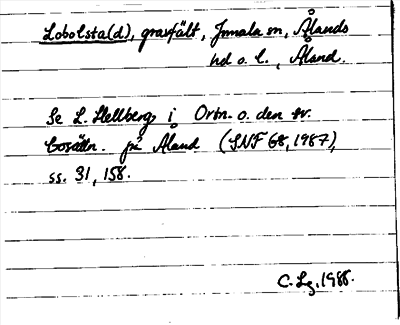 Lobolsta(d), gravfält, Jomala sn, Ålands
hd o. l., Åland.
Se L. Hellberg i Ortn. o. den sv.
bosättn. på Åland (SNF 68, 1987),
ss. 31, 158.
C. Lg, 1988.